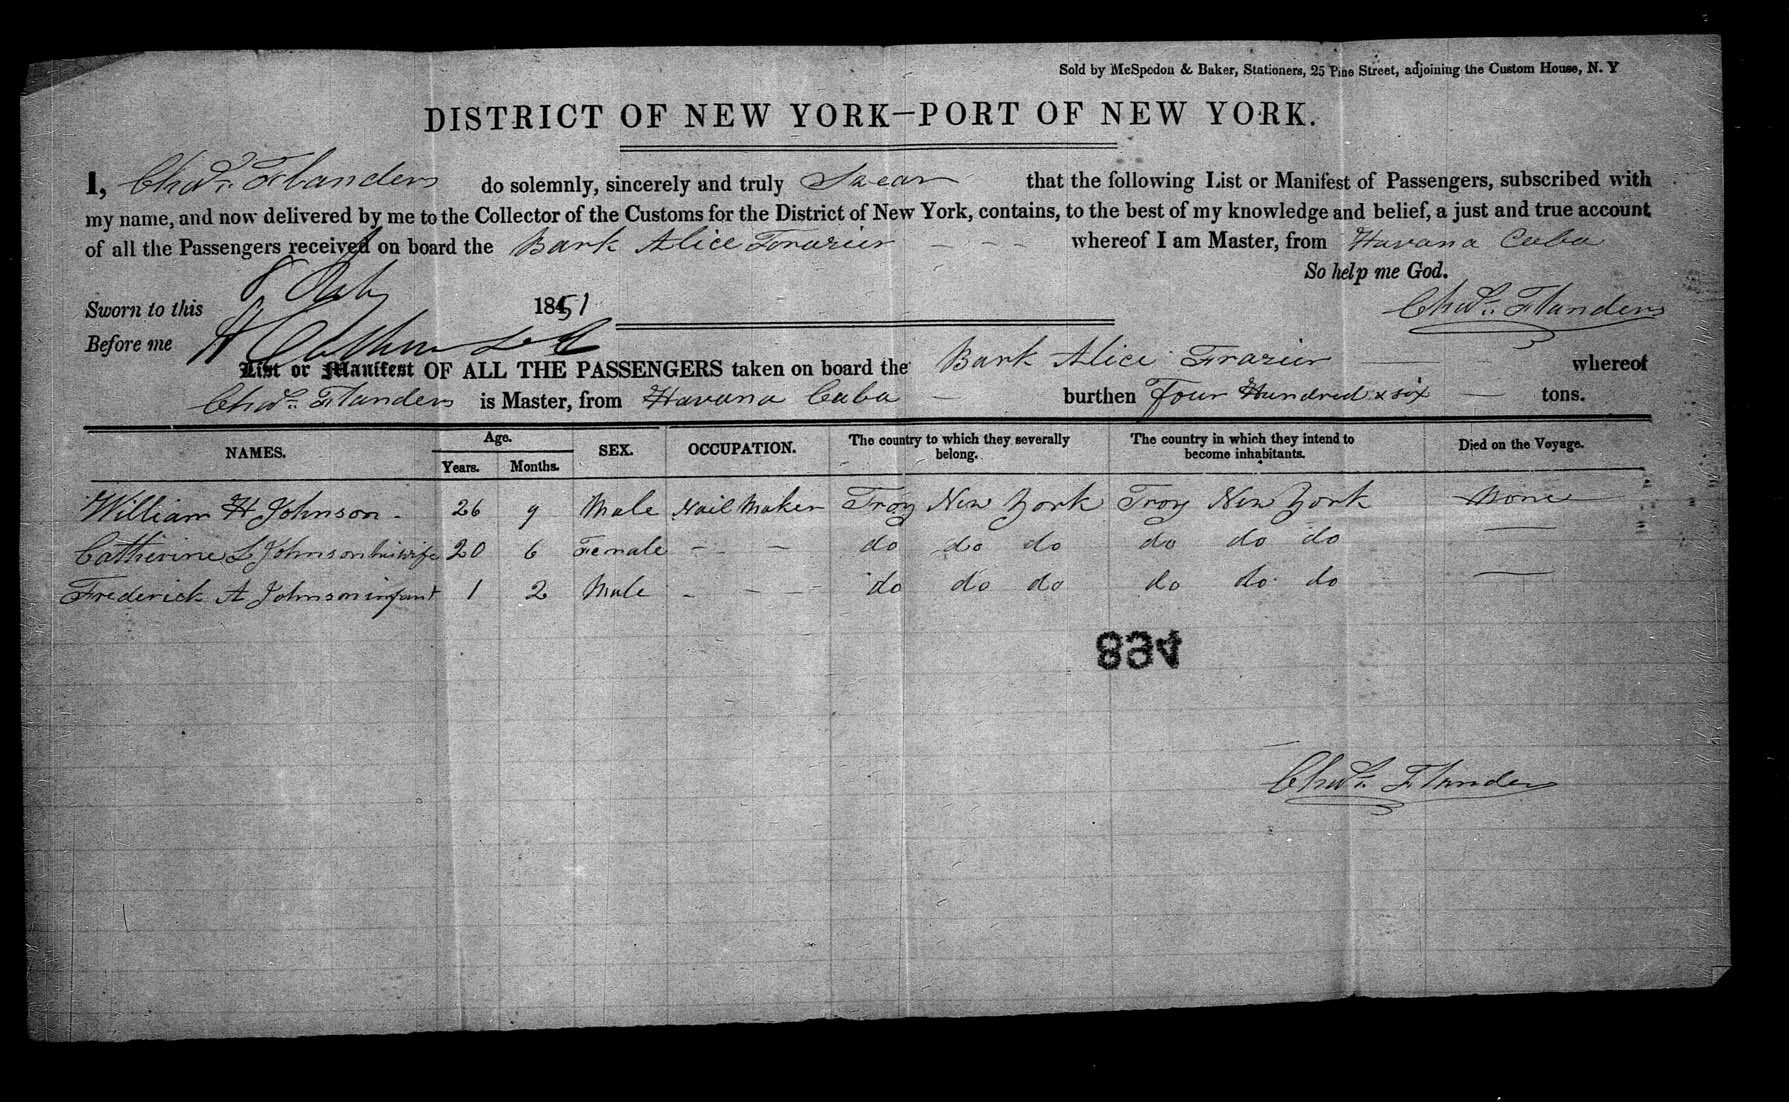 Sold by McSpedon & Baker, Stationers, 25 Pine Street, adjoining the Custom House, N. Y
DISTRICT OF NEW YORK—PORT OF NEW YORK.
I, Chas. Flanders do solemnly, sincerely and truly Swear that the following List or Manifest of Passengers, subscribed with
my name, and now delivered by me to the Collector of the Customs for the District of New York, contains, to the best of my knowledge and belief, a just and true account
of all the Passengers received on board the Bark Alice Frazier whereof I am Master, from Havana Cuba
So help me God.
Sworn to this 8 1851
Chas. Flanders
Before me
List or Manifest OF ALL THE PASSENGERS taken on board the Bark Alice Frazier whereof
Chas. Flanders is Master, from Havana Cuba burthen Four Hundred & six tons.
NAMES. Age. Years. Months. SEX. OCCUPATION. The country to which they severally belong. The country in which they intend to become inhabitants. Died on the Voyage.
William H Johnson 26 9 Male Nail Maker Troy New York Troy New York None
Catherine L Johnson his wife 20 6 Female — — do do do do do do —
Frederick A Johnson infant 1 2 Male - - - do do do do do do —
894
Chas. Flanders